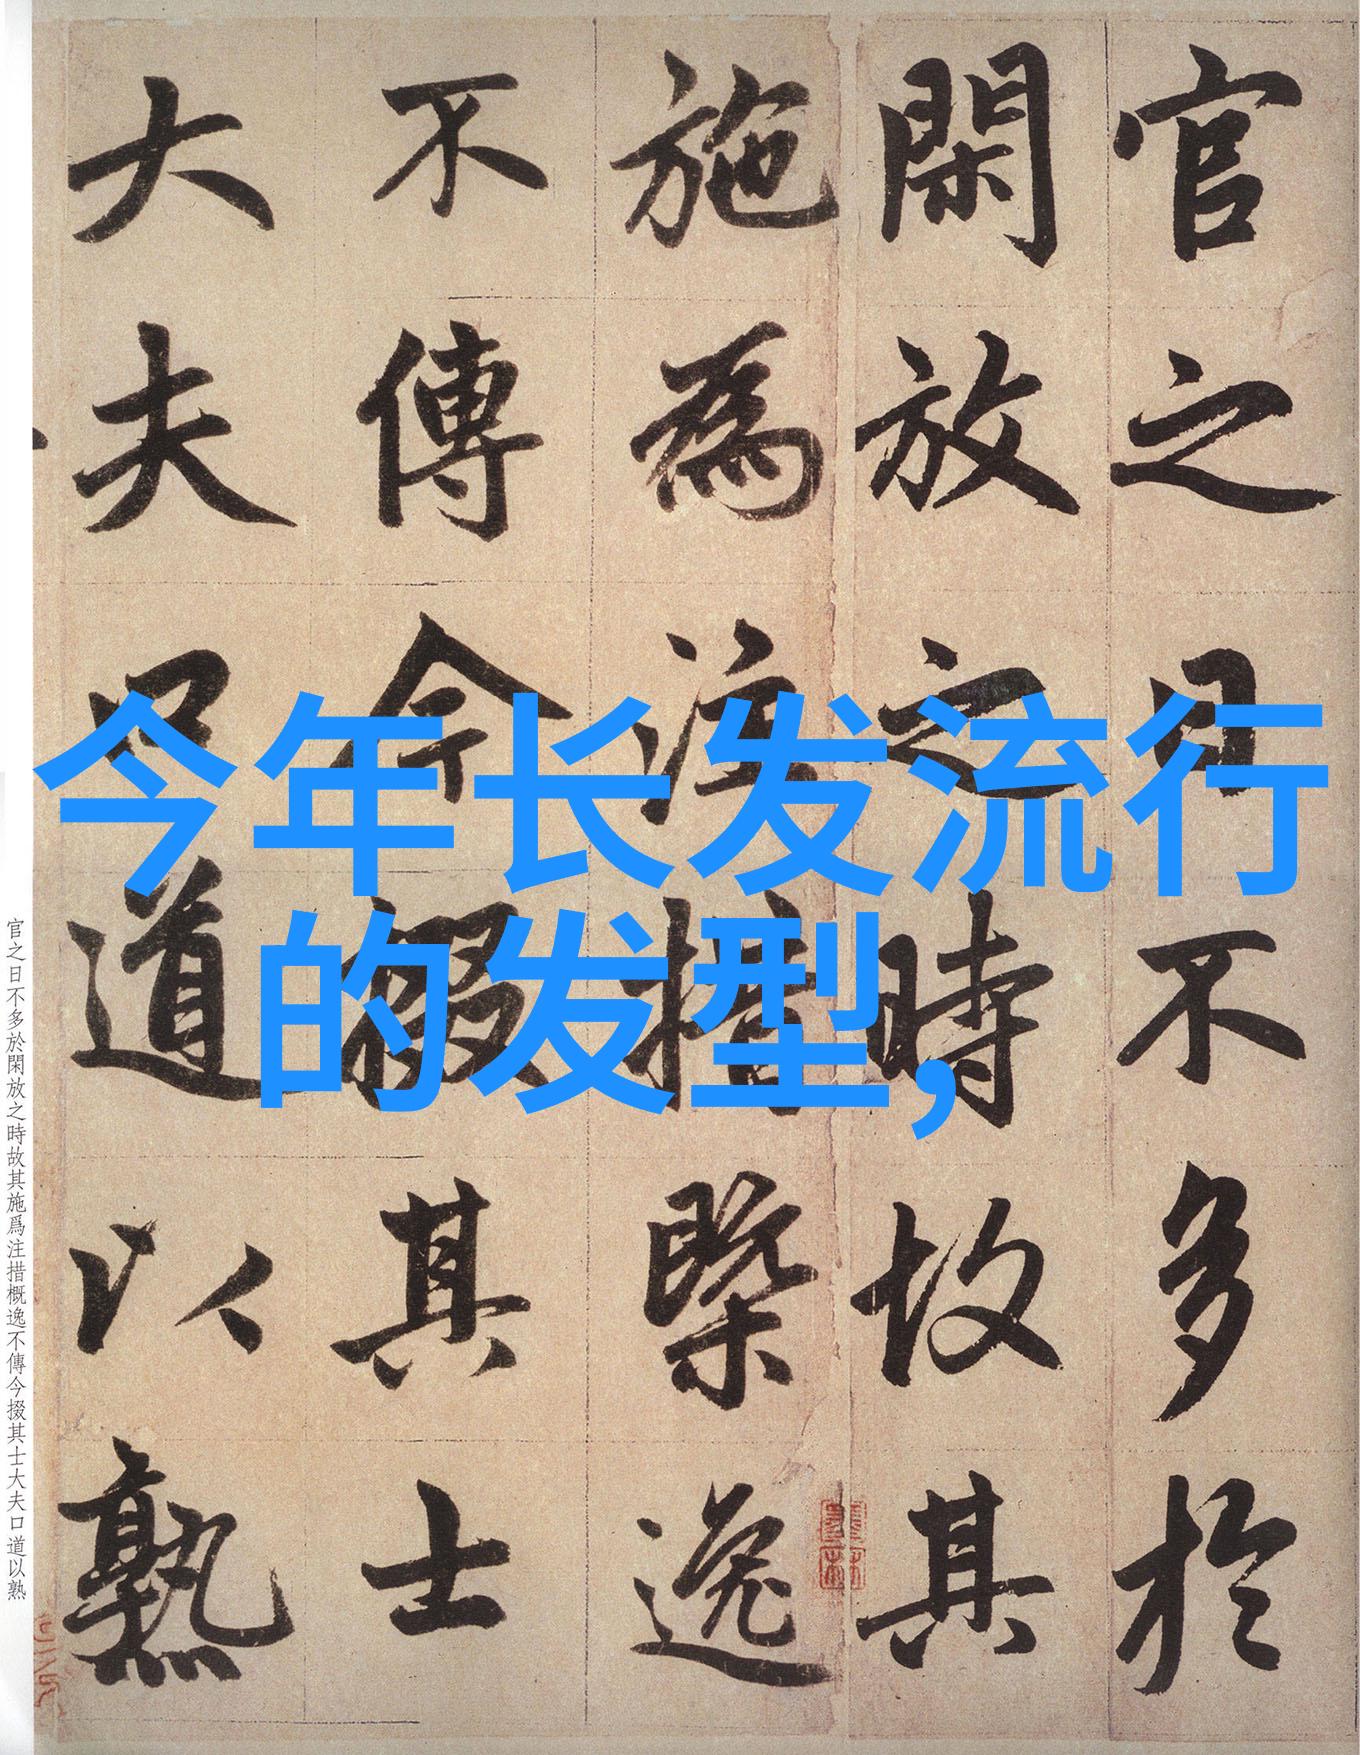 官之日不多於
閑放之時故其
施為注措槩逸
不傳今掇其士
大夫口道以熟
今年长发流行
的发型,
官之日不多於閑放之時故其施爲注措概逸不傳今掇其士大夫口道以熟